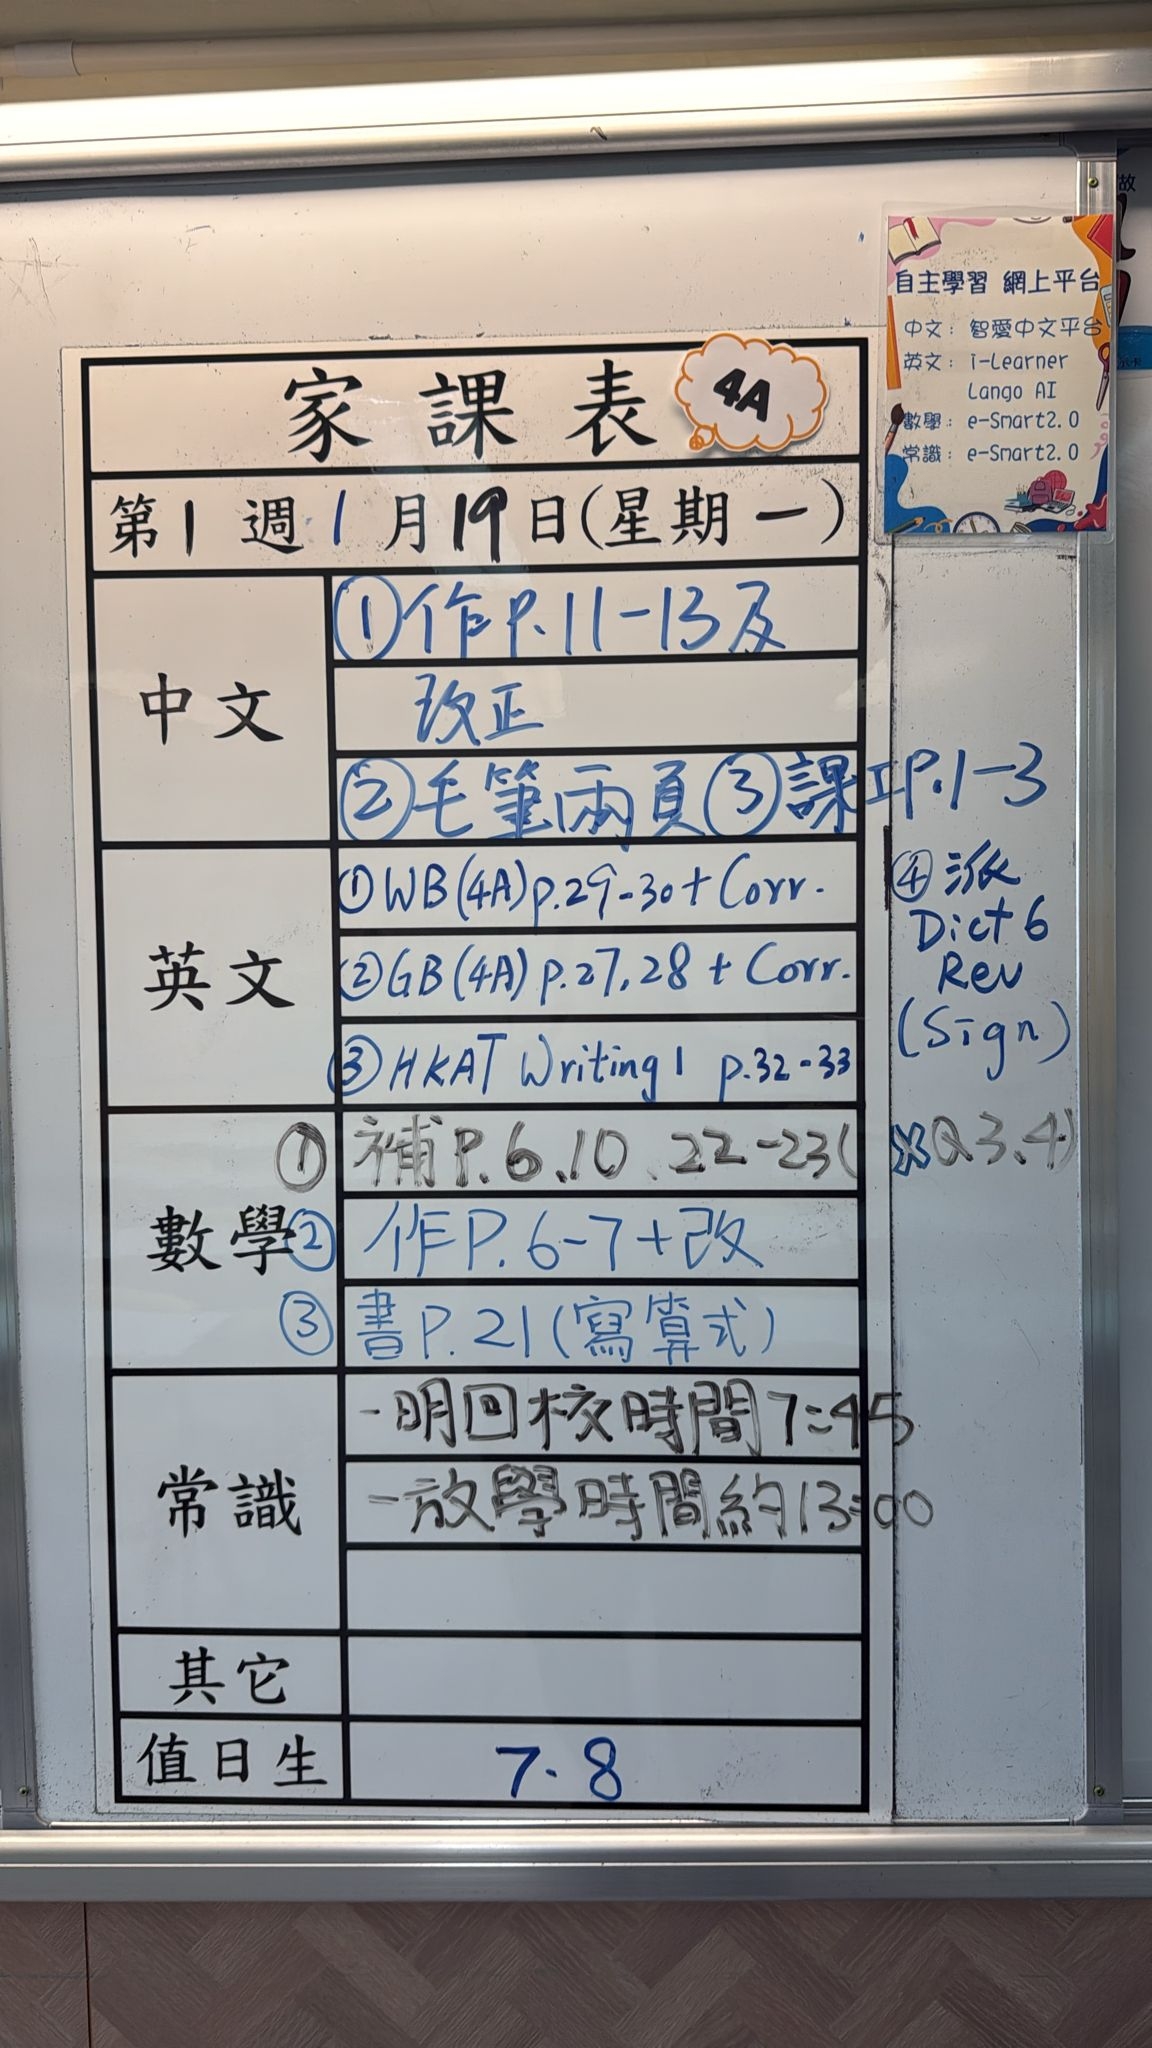 家課表 4A
第1週1月19日(星期一)
中文
①作P.11-13及
改正
②毛筆兩頁③課工P.1-3
英文
①WB(4A)p.29-30+Corr.
②GB(4A)p.27,28+Corr.
③HKAT Writing1 p.32-33
④派
Dict 6
Rev
(Sign)
數學
①補P.6、10、22-23(※Q3、4)
②作P.6-7+改
③書P.21(寫算式)
常識
-明回校時間7:45
-放學時間約13:00
其它
值日生
7.8
自主學習 網上平台
中文:智愛中文平台
英文:i-Learner
Lango AI
數學:e-Smart2.0
常識:e-Smart2.0
做